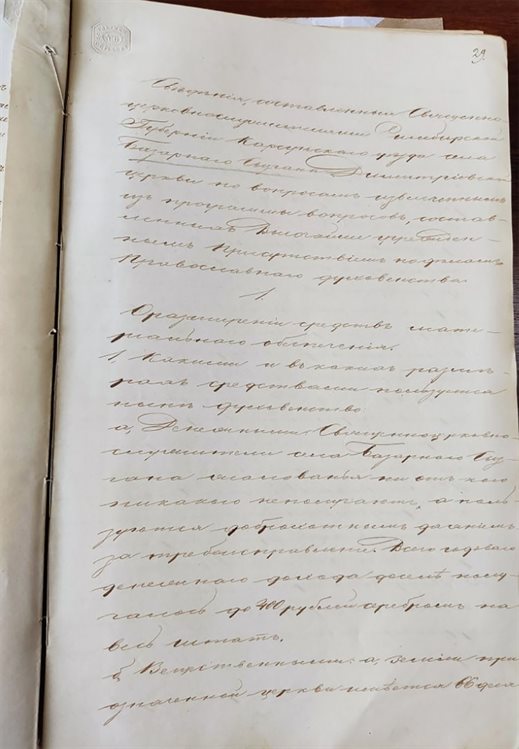 29.
Сведения, составленныя Священно
церковнослужителями Симбирской
Губернии Карсунскаго уезда села
Базарнаго Сызгана Димитриевской
церкви по вопросамъ извлеченнымъ
изъ программы вопросовъ, состав-
ленныхъ Высочайше учрежден-
нымъ Присутствiемъ по деламъ
Православнаго духовенства.
1.
О разширенiи средствъ мате-
рiальнаго обезпеченiя.
1, Какими и въ какихъ разме-
рахъ средствами пользуется
ныне духовенство
а, Денежными: Священноцерковно-
служители села Базарнаго Сыз-
гана жалованья ни отъ кого
никакого не получаютъ, а поль-
зуются доброхотнымъ даянiемъ
за требоисправленiе. Всего годоваго
денежнаго дохода доселе полу-
чалось до 400 рублей серебромъ на
весь штатъ.
б, Вещественными: а, земли при
означенной церкви имеется 66 деся